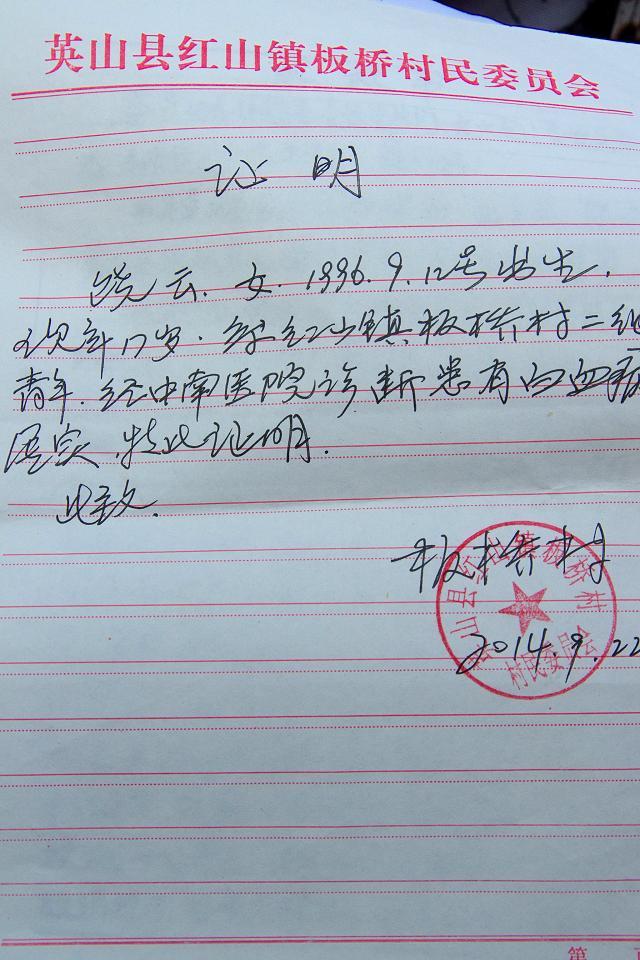 英山县红山镇板桥村民委员会
证明
饶云、女、1996.9.12号出生，
现年17岁. 系红山镇板桥村二组
青年. 经中南医院诊断患有白血病
属实, 特此证明.
此致.
板桥村
2014.9.22
英山县红山镇板桥村
村民委员会
第 页